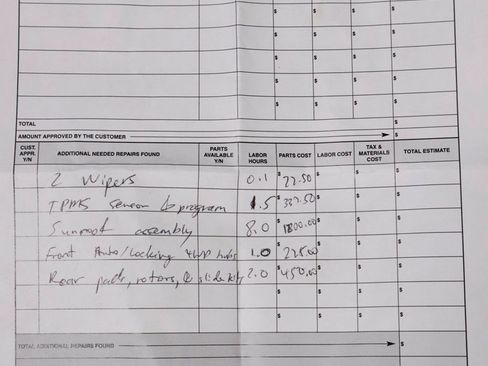 $ $ $ $
$ $ $ $
$ $ $ $
$ $ $ $
$ $ $ $
TOTAL $
AMOUNT APPROVED BY THE CUSTOMER $
CUST. APPR. Y/N ADDITIONAL NEEDED REPAIRS FOUND PARTS AVAILABLE Y/N LABOR HOURS PARTS COST LABOR COST TAX & MATERIALS COST TOTAL ESTIMATE
2 Wipers 0.1 $22.50 $ $ $
TPMS sensor & program 1.5 $337.50 $ $ $
Sunroof assembly 8.0 $1800.00 $ $ $
Front Auto/Locking 4WD hubs 1.0 $225.00 $ $ $
Rear pads, rotors, & slide 2.0 $450.00 $ $ $
$ $ $ $
$ $ $ $
TOTAL ADDITIONAL REPAIRS FOUND $